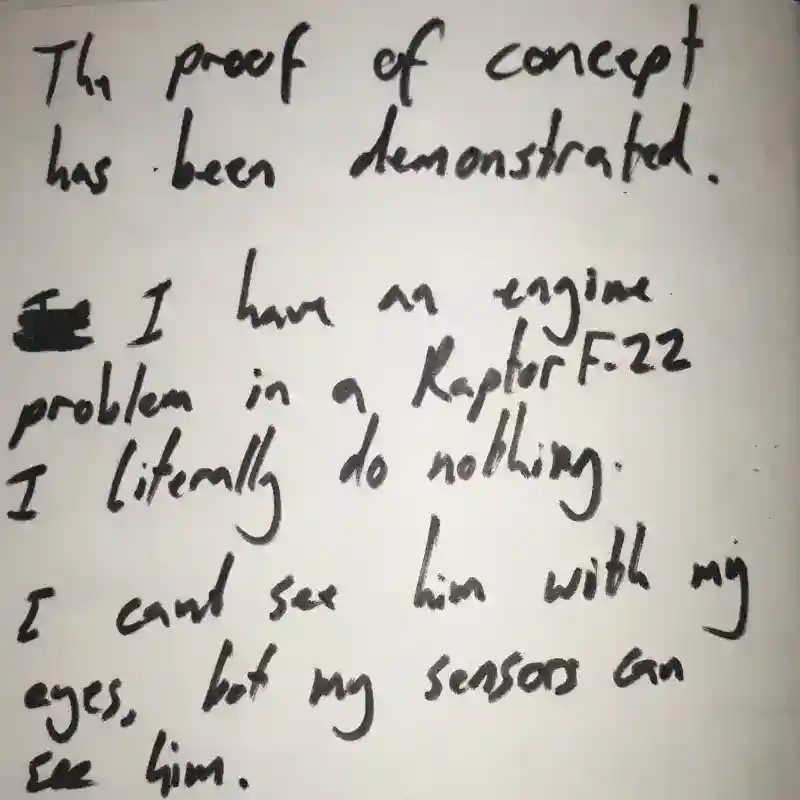 The proof of concept
has been demonstrated.
I have an engine
problem in a Raptor F-22
I literally do nothing.
I cant see him with my
eyes, but my sensors can
see him.